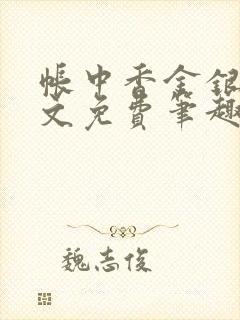 帐中香金银
文免费笔趣
魏志俊